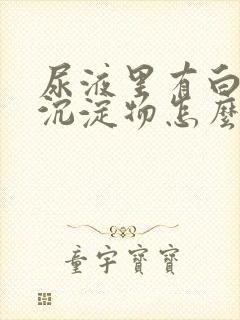 尿液里有白
沉淀物怎麼
童宇寶寶